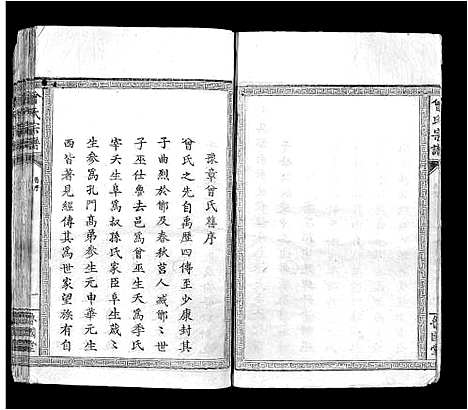 曾氏宗譜
豫章曾氏舊序
曾氏之先自禹歷四傳生少康封其
子曲烈於鄫及春秋莒人滅鄫〻世
子巫仕魯去邑爲曾巫生夭爲季氏
宰夭生阜爲叔孫氏家臣阜生蒧〻
生參爲孔門高弟參生元申華元生
西皆著見經傳其爲世家望族有自
曾氏宗譜
舊序
一